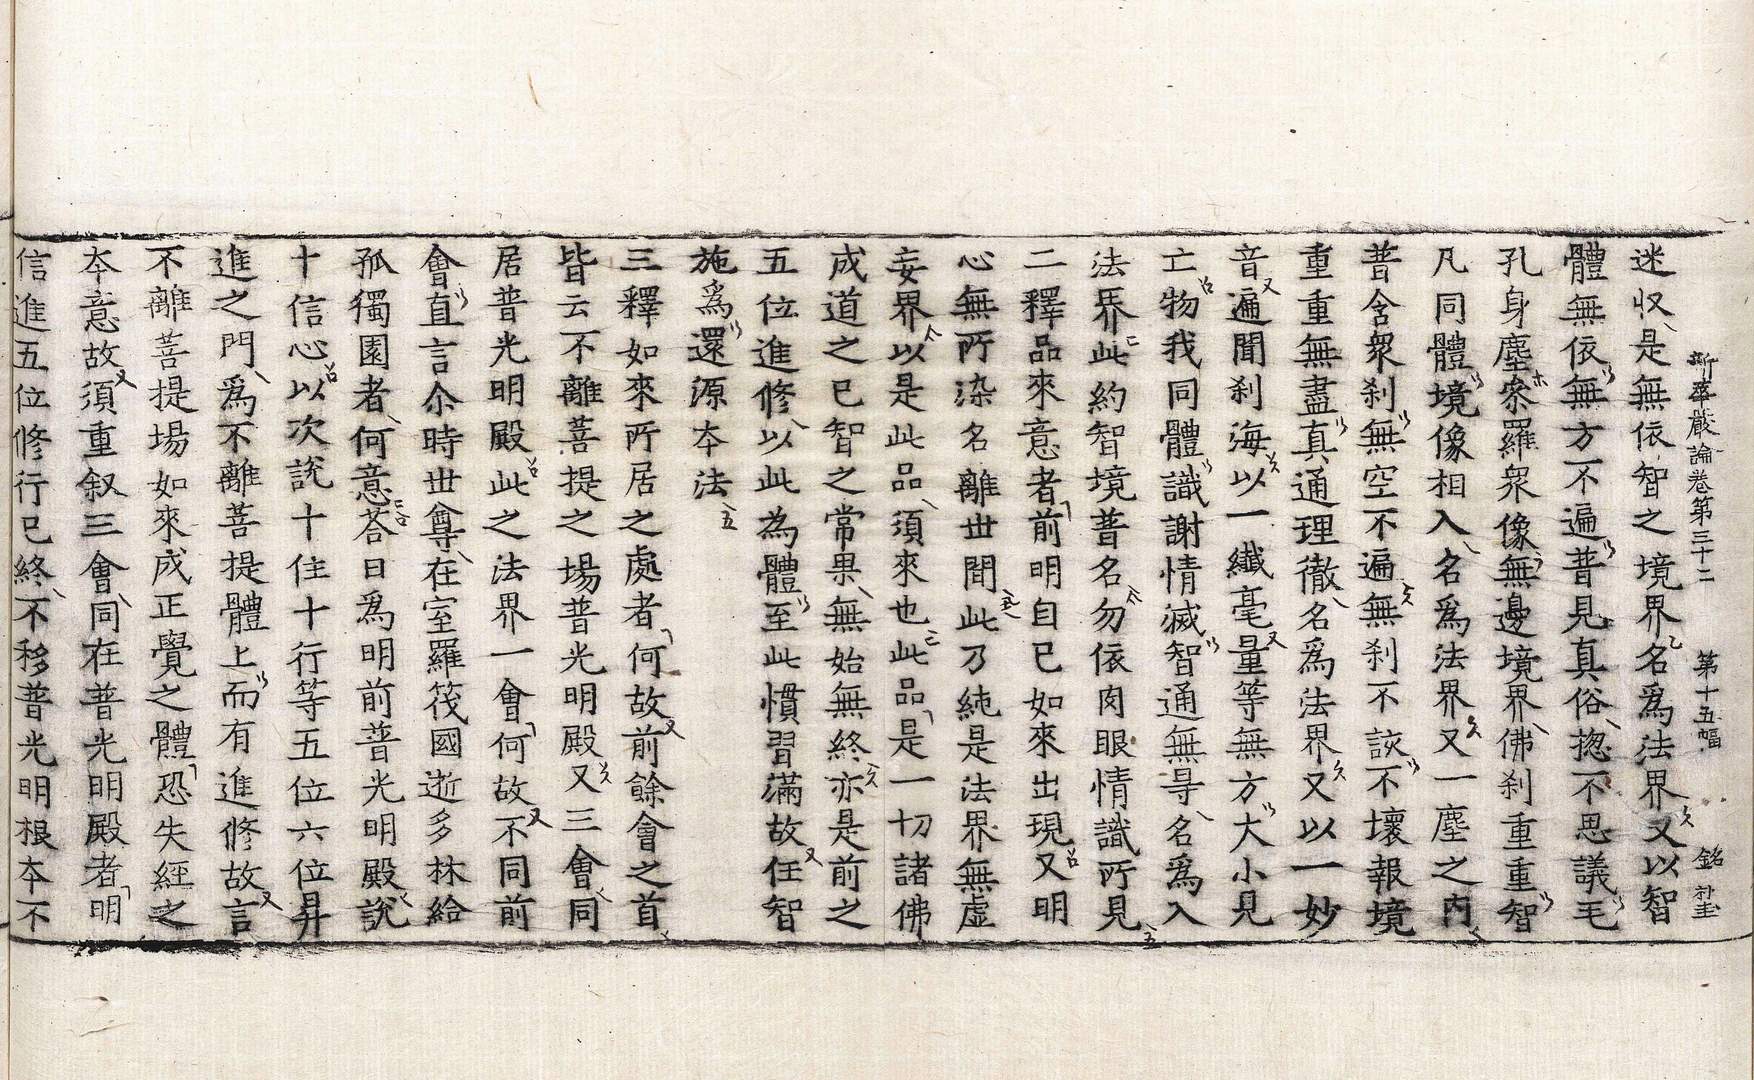 新華嚴論卷第三十二 第十五幅 銘 
迷収是無依智之境界名爲法界又以智
體無依無方不遍普見真俗揔不思議毛
孔身塵叅羅衆像無邊境界佛刹重重智
凡同體境像相入名爲法界又一塵之内
普含衆刹無空不遍無刹不該不壞報境
重重無盡真通理徹名爲法界又以一妙
音遍聞刹海以一纖毫量等無方大小見
亡物我同體識謝情滅智通無㝵名爲入
法界此約智境普名勿依肉眼情識所見
二釋品來意者前明自已如來出現又明
心無所染名離世間此乃純是法界無虛
妄界以是此品須來也此品是一切諸佛
成道之已智之常果無始無終亦是前之
五位進修以此為體至此慣習滿故任智
施爲還源夲法
三釋如來所居之處者何故前餘會之首
皆云不離菩提之場普光明殿又三會同
居普光明殿此之法界一會何故不同前
會直言尒時世尊在室羅筏國逝多林給
孤獨園者何意荅曰爲明前普光明殿說
十信心以次說十住十行等五位六位昇
進之門爲不離菩提體上而有進修故言
不離菩提場如來成正覺之體恐失經之
夲意故須重叙三會同在普光明殿者明
信進五位修行已終不移普光明根夲不